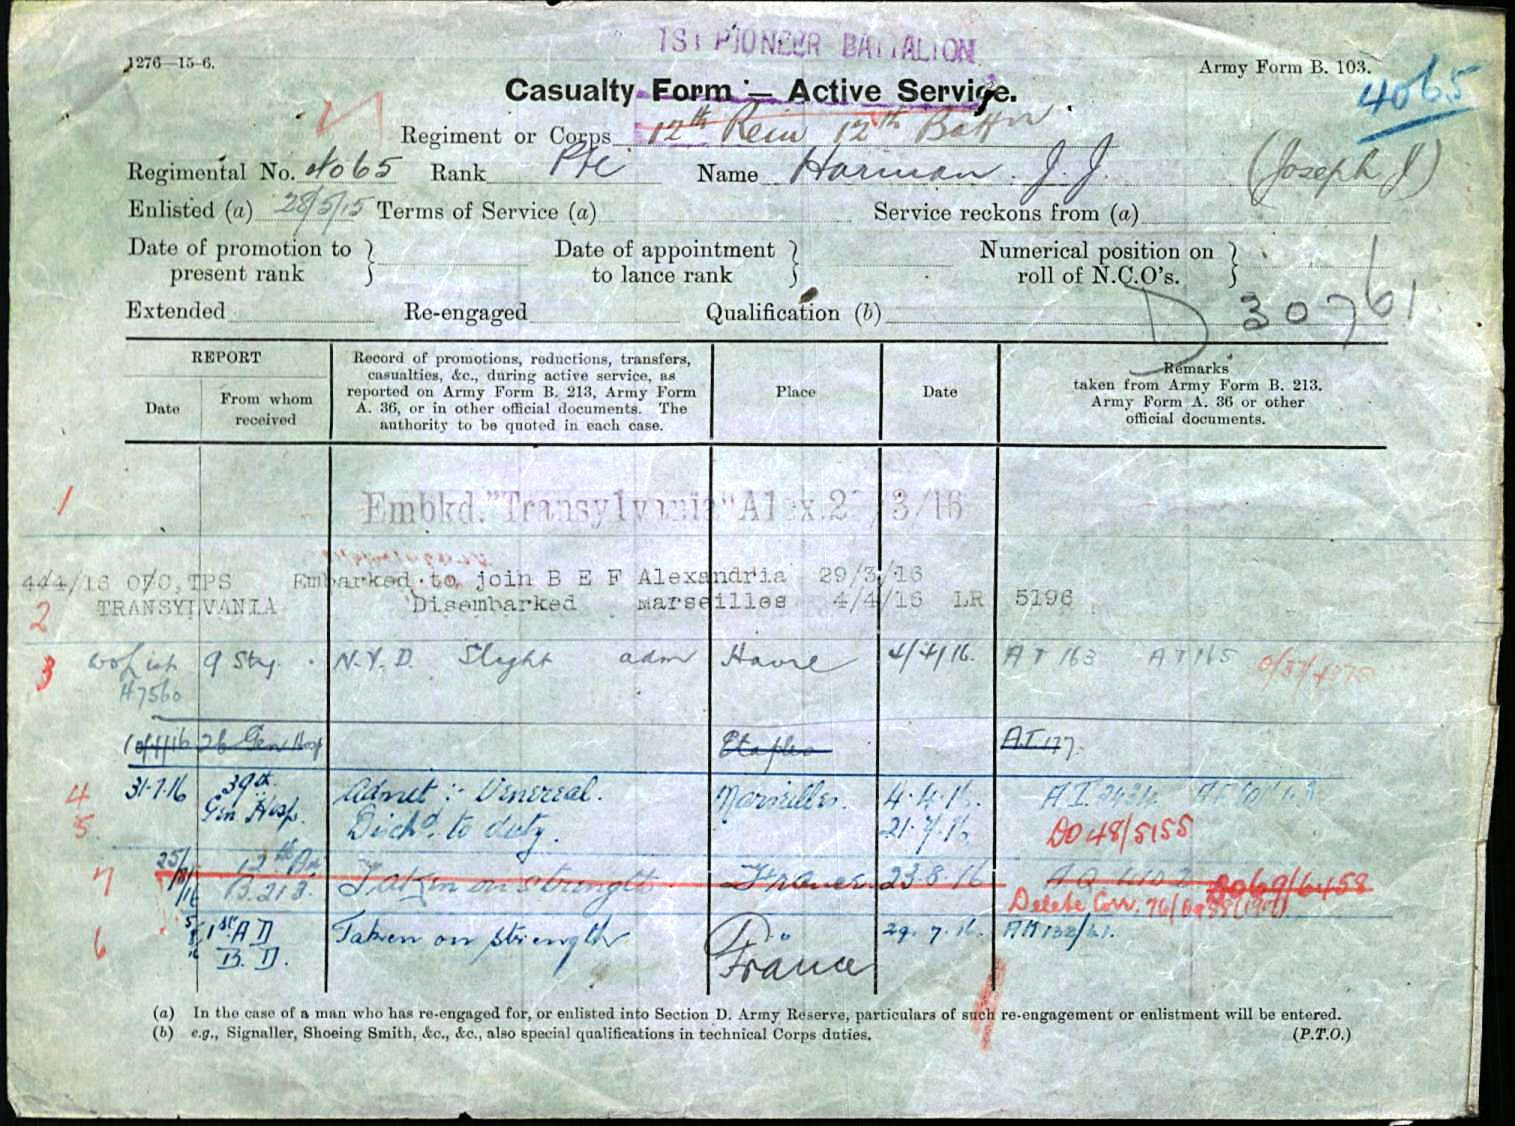 1ST PIONEER BATTALION
1276—15-6.
Army Form B. 103.
4065
Casualty Form — Active Service.
Regiment or Corps 12th Rein 12th Battn
Regimental No. 4065 Rank Pte Name Harman J. J. (Joseph J)
Enlisted (a) 28/5/15 Terms of Service (a) Service reckons from (a)
Date of promotion to present rank } Date of appointment to lance rank } Numerical position on roll of N.C.O's. }
D 30761
Extended Re-engaged Qualification (b)
REPORT
Date
From whom received
Record of promotions, reductions, transfers, casualties, &c., during active service, as reported on Army Form B. 213, Army Form A. 36, or in other official documents. The authority to be quoted in each case.
Place
Date
Remarks taken from Army Form B. 213. Army Form A. 36 or other official documents.
1
Embkd. "Transylvania" Alex. /3/16
44/4/16 O/C, TPS Embarked to join B E F Alexandria 29/3/16
2 TRANSYLVANIA Disembarked marseilles 4/4/16 LR 5196
3 9 Sty. N.Y.D. Slight adm Havre 4/4/16. AT 163 AT 165
H7560
26 Gen Hosp Etaples AT 177.
4 31-7-16 39th Gen Hosp. Admit :- Venereal. Marseilles. 4.4.16.
5 Dischd. to duty. 21.7.16 DO 48/5155
7 25/8/16 12th Bn B.213. Taken on strength. France 23.8.16 DO69/6458
Delete Corr.
6 5/8/16 1st A D B. D. Taken on strength Do 29.7.16.
France
(a) In the case of a man who has re-engaged for, or enlisted into Section D. Army Reserve, particulars of such re-engagement or enlistment will be entered.
(b) e.g., Signaller, Shoeing Smith, &c., &c., also special qualifications in technical Corps duties. (P.T.O.)